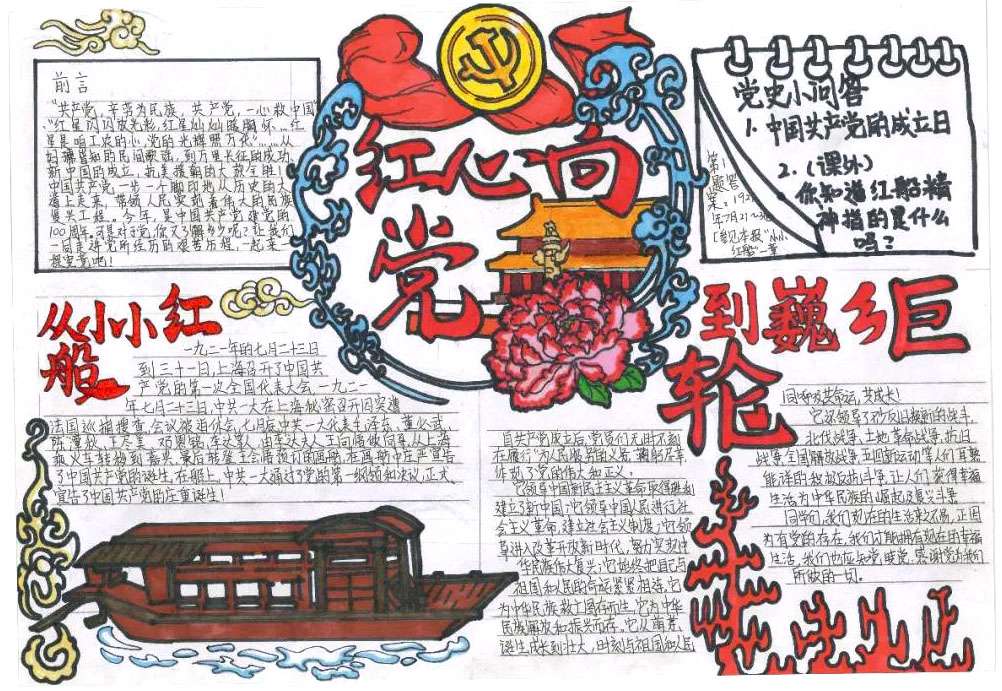 前言
"共产党,辛劳为民族,共产党,一心救中国"
"红星闪闪放光彩,红星灿灿暖胸怀…红
星是咱工农的心,党的光辉照万代"……从
妇孺皆知的民间歌谣,到万里长征的成功、
新中国的成立,抗美援朝的大获全胜!
中国共产党,一步一个脚印地从历史的大
道上走来,带领人民实现着伟大的民族
复兴工程。今年,是中国共产党建党的
100周年。可是对于党,你又了解多少呢?让我们
一同走进党所经历的艰苦历程,一起来一
探究竟吧!
红心向
党
党史小问答
1.中国共产党的成立日
2.(课外)
你知道红船精
神指的是什么
吗?
第1
题答
案:192
年7月2
[详见本报"小小
红船"一章
从小小红
船
到巍巍巨
轮
一九二一年的七月二十三日
到三十一日,上海召开了中国共
产党的第一次全国代表大会。一九二一
年七月二十三日,中共一大在上海秘密召开因突遭
法国巡捕搜查,会议被迫休会。七月底,中共一大代表毛泽东、董必武、
陈潭秋、王尽美、邓恩铭、李达等人,由李达夫人王会悟做向导,从上海
乘火车转移到嘉兴,最后转至王会悟预订的画舫。在画舫中庄严宣告
了中国共产党的诞生。在船上,中共一大通过了党的第一纲领和决议,正式
宣告了中国共产党的庄重诞生!
自共产党成立后,党员们无时不刻
在履行"为人民服务"的义务,鞠躬尽瘁
体现了党的伟大和正义。
它领导中国新民主主义革命取得胜利
建立了新中国;它领导中国人民进行社
会主义革命,建立社会主义制度;它领
导进入改革开放新时代,努力实现中
华民族伟大复兴;它始终把自己与
祖国和人民的命运紧紧相连。它
为中华民族救亡图存而生,它为中华
民族解放和振兴而在。它从萌芽、
诞生成长到壮大,时刻与祖国和人民
同呼吸共命运,共成长!
它还领导了不少反旧救新的战斗。
北伐战争、土地革命战争、抗日
战争、全国解放战争、五四新运动等人们耳熟
能详的救故反抗斗争,让人们获得幸福
生活,为中华民族的崛起及复兴斗争
同学们,我们现在的生活来之不易,正因
为有党的存在,我们才能拥有现在的幸福
生活。我们也应知党爱党,感谢党为我们
所做的一切。